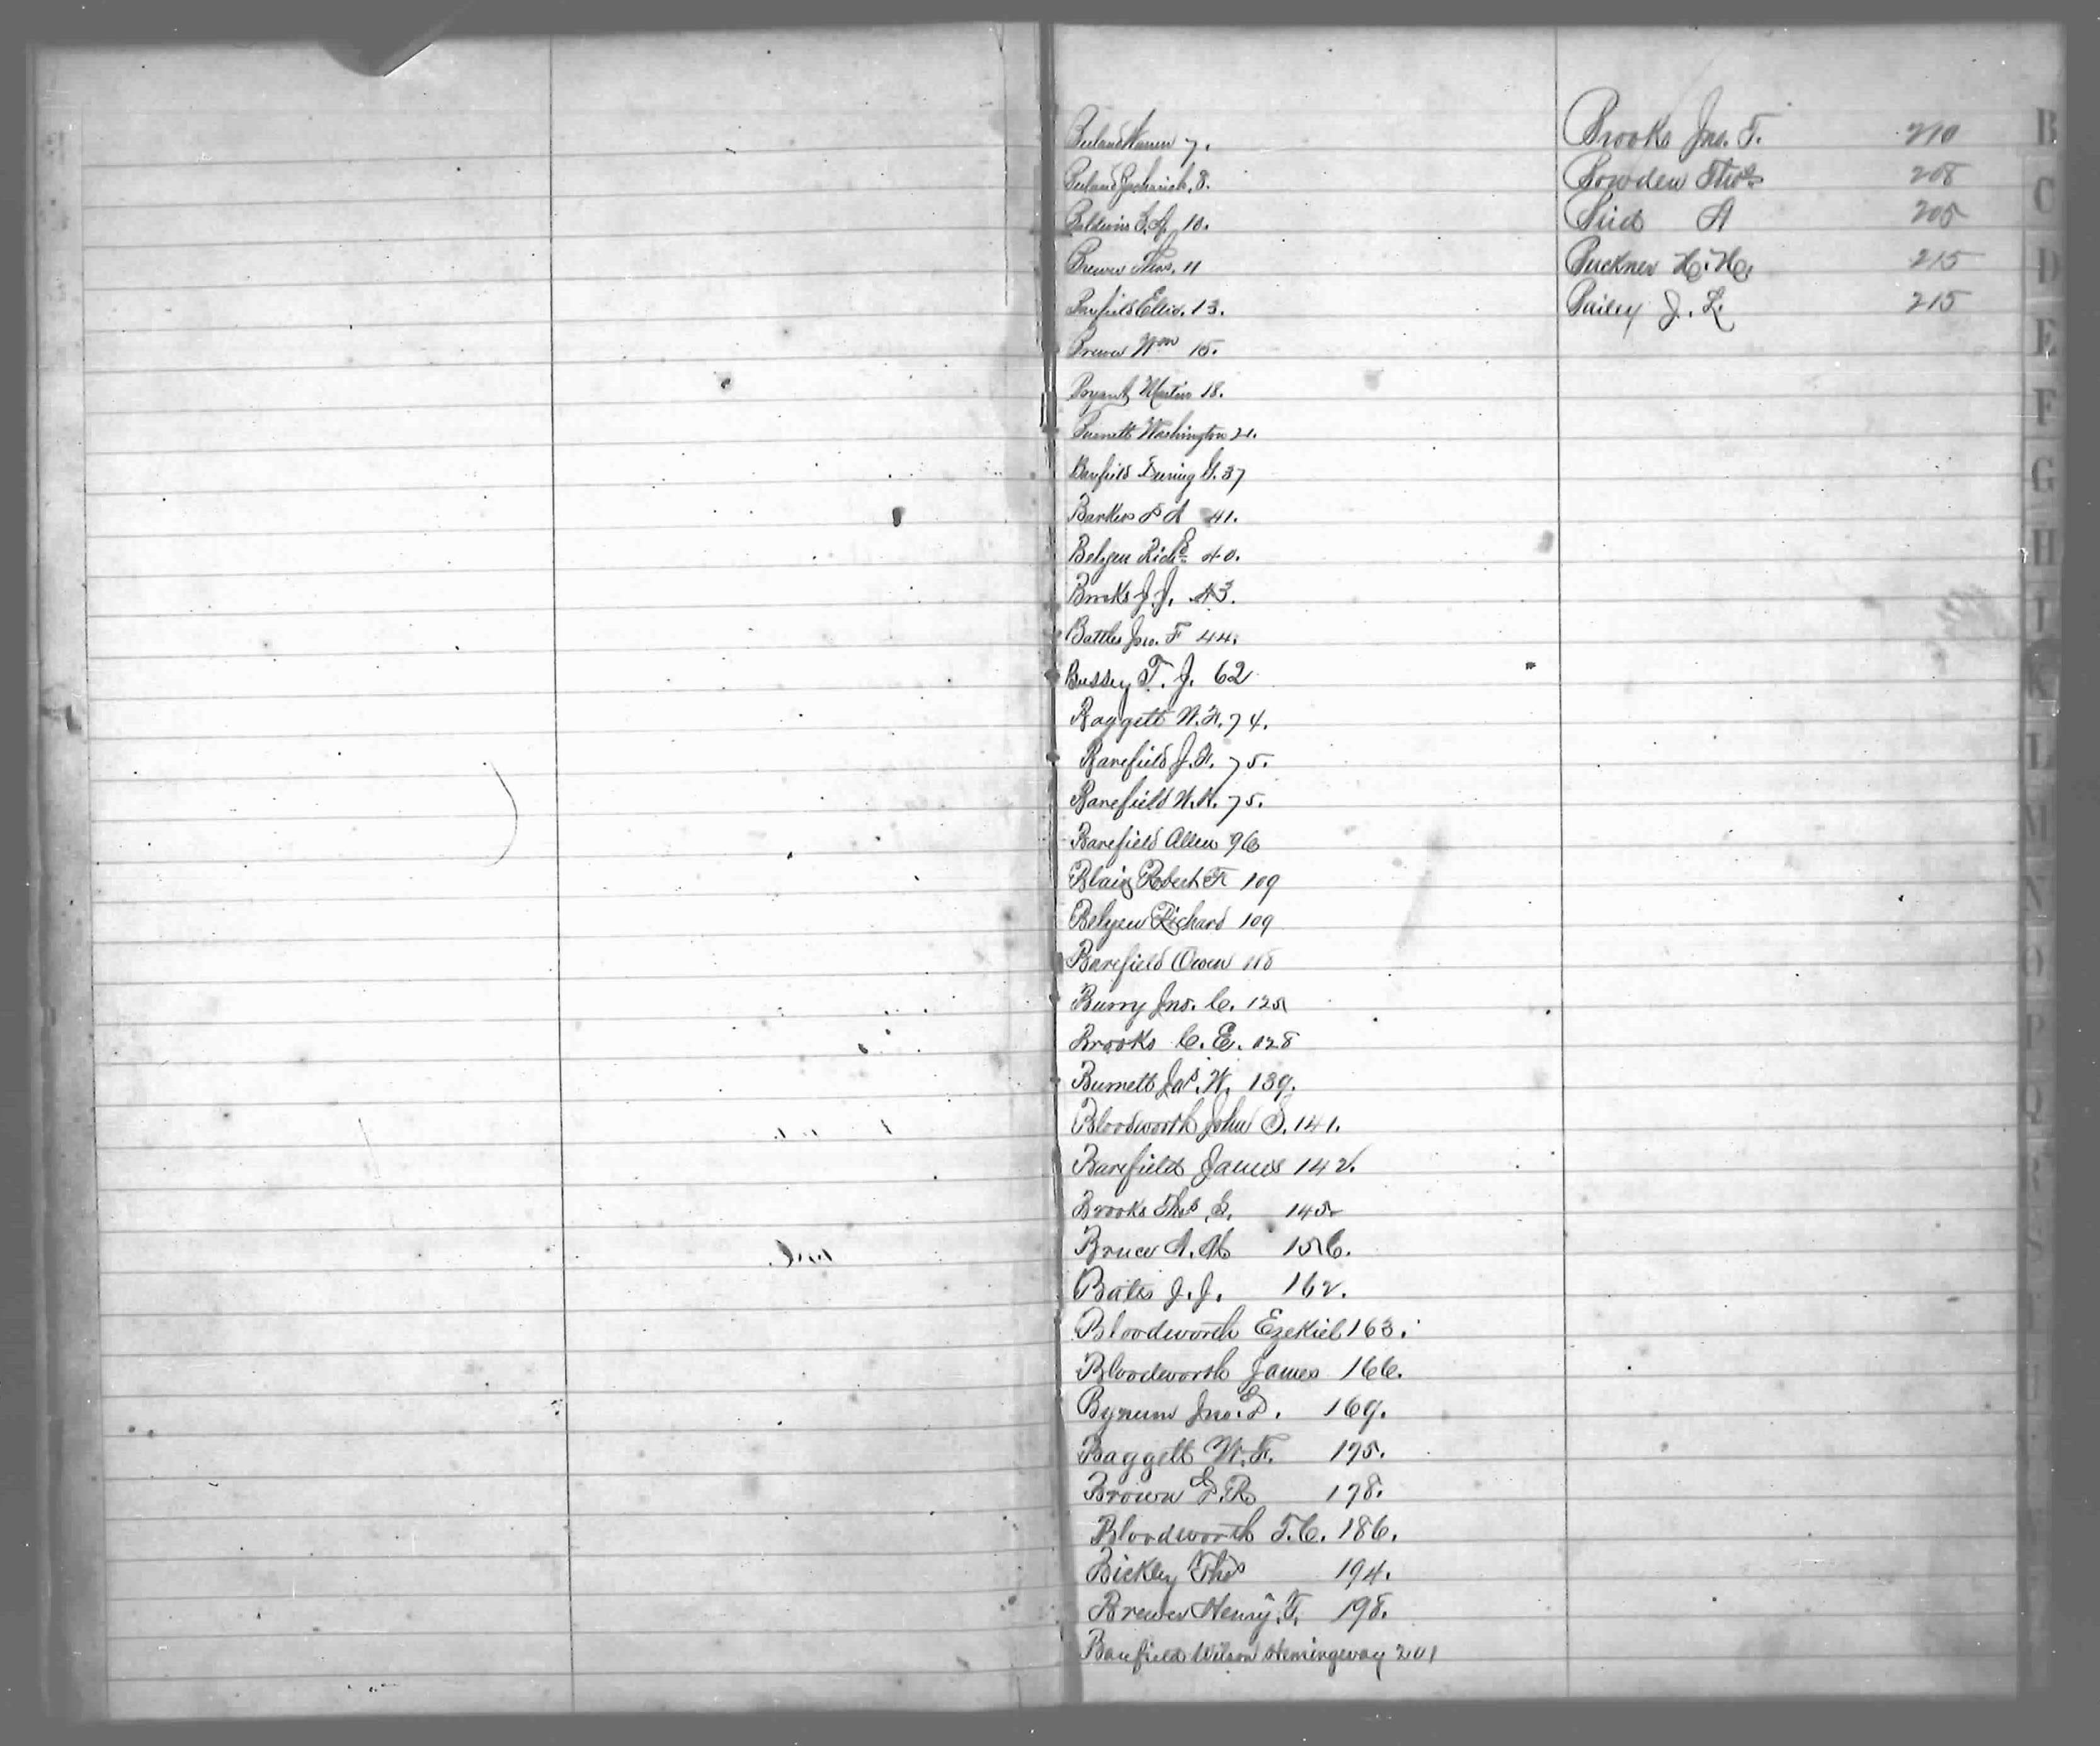 Beeland Warren 7.
Beeland Zachariah. 8.
Baldwin 10.
Brewer Thos. 11
Barfield Ellis. 13.
Brewer Wm 15.
Bryant Martin 18.
Burnett Washington 21.
Barfield G. 37
41.
Belyeu Richd 40.
Brooks J. J. 43.
Battles Jno. F 44.
Bussey T. J. 62
Baggett W. F. 74.
Barefield J. F. 75.
Barefield W. H. 75.
Barefield Allen 96
Blair Robert F 109
Belyeu Richard 109
Barefield Owen 118
Burry Jno. C. 125
Brooks C. E. 128
Burnett Jas. W. 139.
Bloodworth John S. 141.
Barefield James 142.
Brooks Thos S. 145
Bruce A. M 156.
Bates J. J. 162.
Bloodworth Ezekiel 163.
Bloodworth James 166.
Bynum Jno. D. 169.
Baggett W. F. 175.
Brown R. 178.
Bloodworth T. C. 186.
Bickley Thos 194.
Brewer Henry. T. 198.
Barfield Wilson Hemingway 201
Brooks Jno. T. 210
Bowden Thos 208
A 205
Buckner H. H. 215
Bailey J. L. 215
B
C
D
E
F
G
H
I
K
L
M
N
O
P
Q
R
S